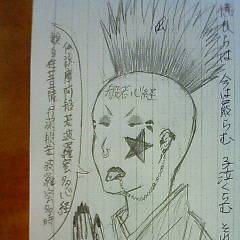 憶良らは 今は罷らむ 子泣くらむ
般若心経
仏説摩訶般若波羅蜜多心経
観自在菩薩行深般若波羅蜜多時